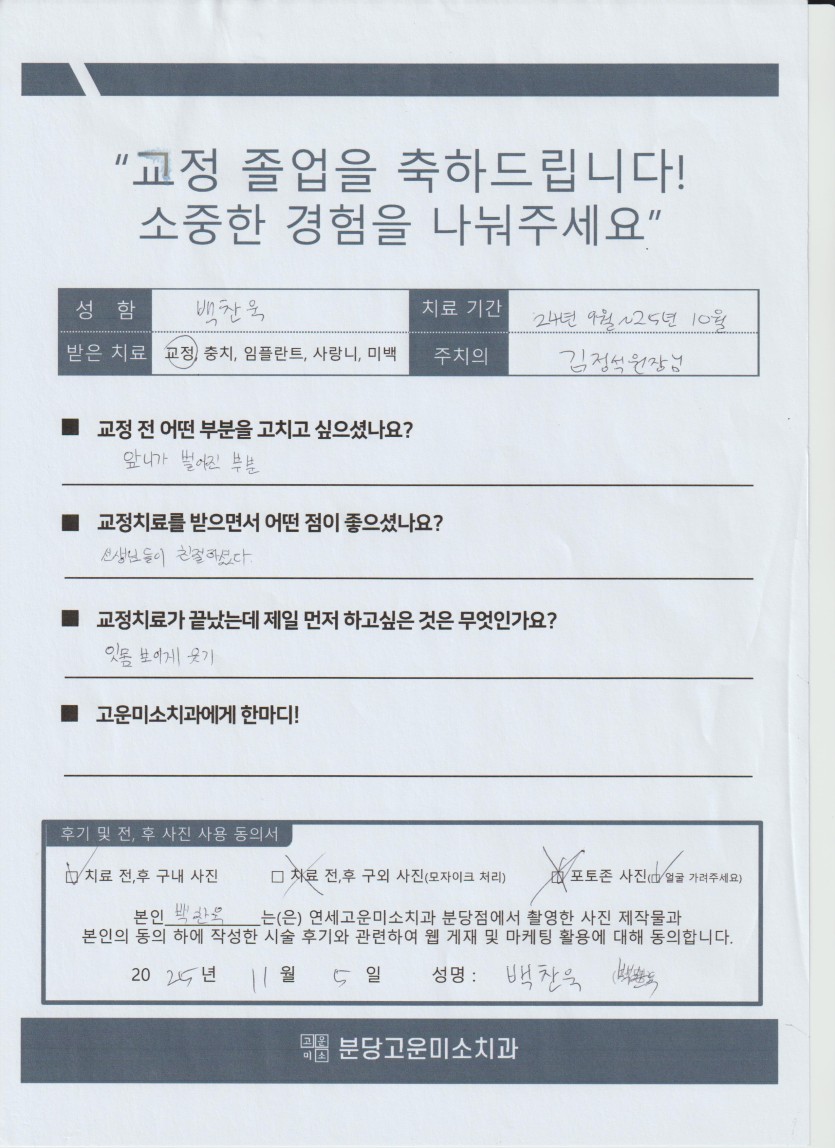 “교정 졸업을 축하드립니다!
소중한 경험을 나눠주세요”
성 함 백찬욱 치료 기간 24년 9월~25년 10월
받은 치료 교정, 충치, 임플란트, 사랑니, 미백 주치의 김정석원장님
■ 교정 전 어떤 부분을 고치고 싶으셨나요?
앞니가 벌어진 부분
■ 교정치료를 받으면서 어떤 점이 좋으셨나요?
선생님들이 친절하셨다.
■ 교정치료가 끝났는데 제일 먼저 하고싶은 것은 무엇인가요?
잇몸 보이게 웃기
■ 고운미소치과에게 한마디!
후기 및 전, 후 사진 사용 동의서
치료 전,후 구내 사진 치료 전,후 구외 사진(모자이크 처리) 포토존 사진(얼굴 가려주세요)
본인 백찬욱 는(은) 연세고운미소치과 분당점에서 촬영한 사진 제작물과
본인의 동의 하에 작성한 시술 후기와 관련하여 웹 게재 및 마케팅 활용에 대해 동의합니다.
2025년 11월 5일 성명 : 백찬욱
고운미소 분당고운미소치과